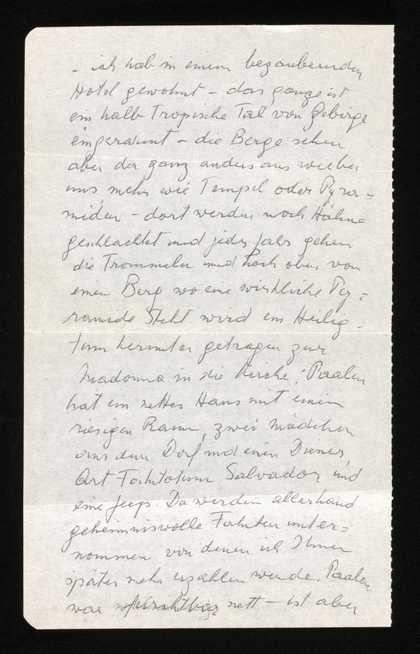 - ich hab in einem bezaubernden
Hotel gewohnt - das ganze ist
ein halb Tropische Tal von Gebirge
eingeramt - die Berge sehen
aber da ganz anders aus wie bei
uns mehr wie Tempel oder Pyra-
miden - dort werden noch Hähne
geschlachtet und jedes Jahr gehen
die Trommeln und hoch oben von
einen Berg wo eine wirkliche Py=
ramide steht wird ein Heilig-
tum herunter getragen zur
Madonna in die Kirche; Paalen
hat ein nettes Haus mit einem
riesigen Raum, zwei Mädchen
aus dem Dorf und einen Diener
Art Faktotum Salvador und
eine Jeep. Da werden allerhand
geheimnisvolle Fahrten unter=
nommen von denen ich Ihnen
später mehr erzählen werde. Paalen
war nett - ist aber